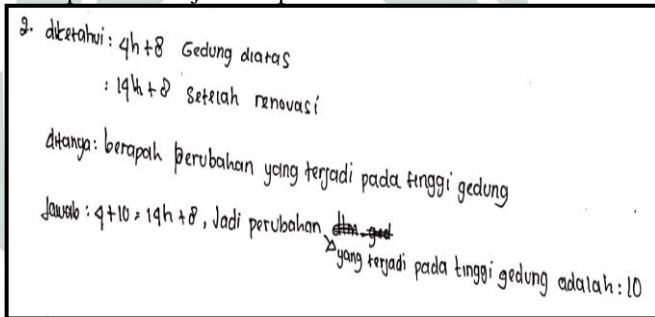 2. diketahui : 4h+8 Gedung diatas
: 14h+8 Setelah renovasi
ditanya: berapah perubahan yang terjadi pada tinggi gedung
Jawab : 4+10 = 14h+8, Jadi perubahan
yang terjadi pada tinggi gedung adalah : 10